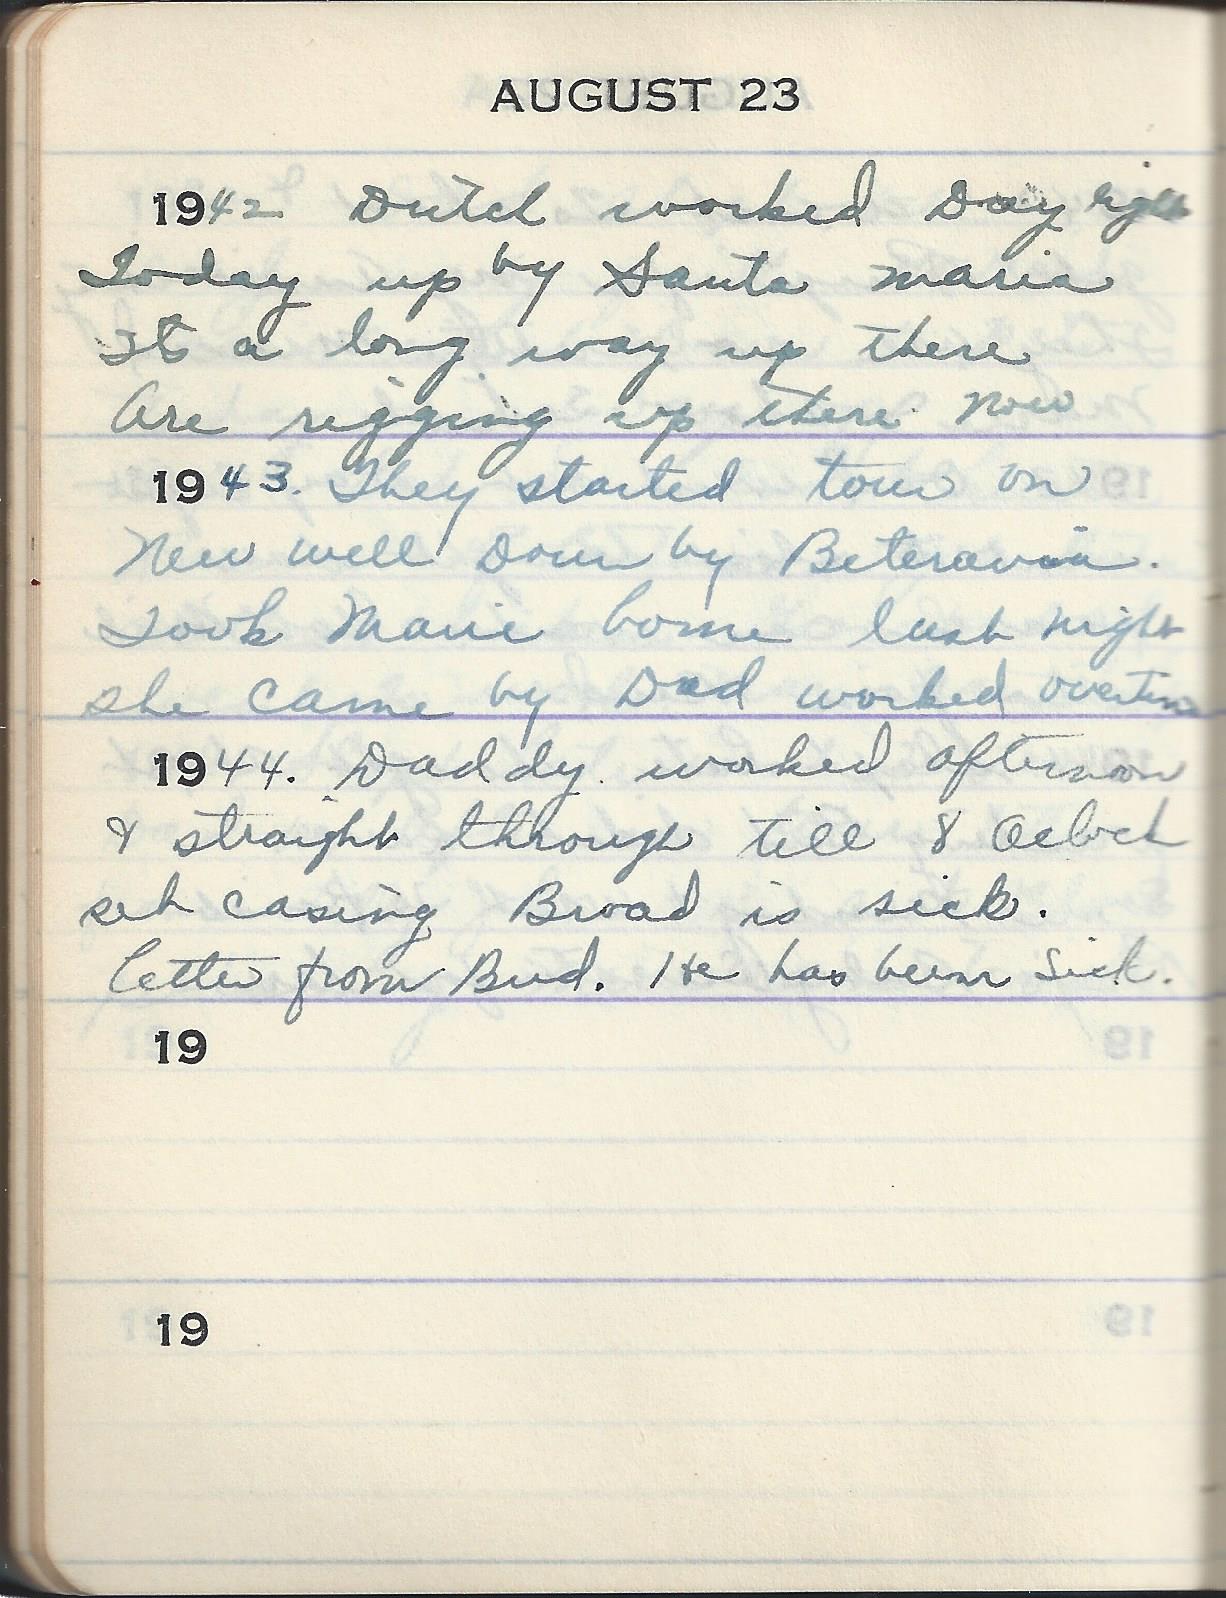 AUGUST 23
1942 Dutch worked Day
Today up by Santa Maria
Its a long way up there
Are rigging up there now
1943. They started tour on
New well Down by Beteravia.
Took Marie home last night
she came by Dad worked overtime
1944. Daddy worked afternoon
& straight through till 8 Oclock
set casing Broad is sick.
letter from Bud. He has been Sick.
19
19